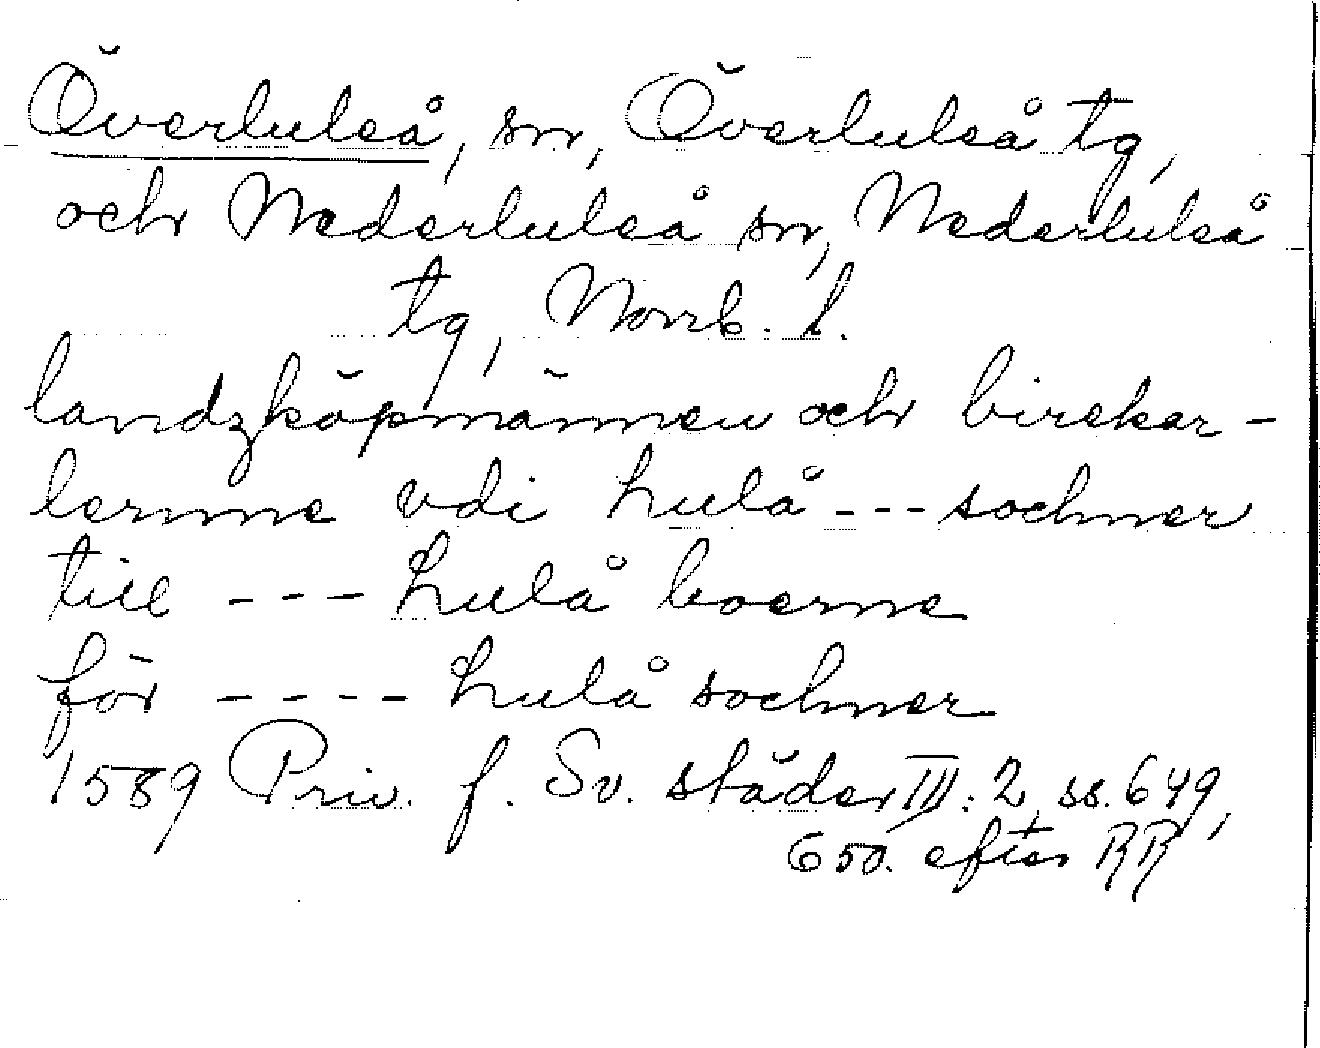 Överluleå, sn, Överluleå tg,
och Nederluleå sn, Nederluleå
tg, Norrb. l.
landzköpmännen och birekar-
lernne vdi Lulå --- sochner
till --- Lulå boerne
för ---- Lulå sochner
1589 Priv. f. Sv. städer III: 2, ss. 649,
650. efter RR